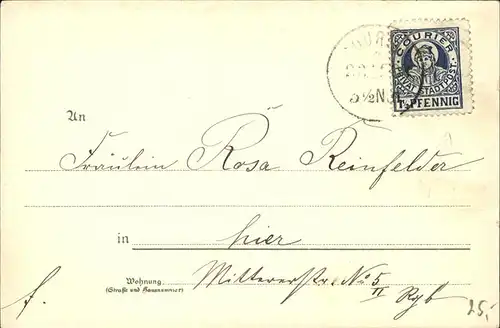 COURIER
PRIVAT STADTPOST
1½ PFENNIG
5½N.
An
Fräulein Rosa Reinfelder
in hier
Wohnung
(Straße und Hausnummer)
Mittererstr. No 5
II
Rgb
f.
25.